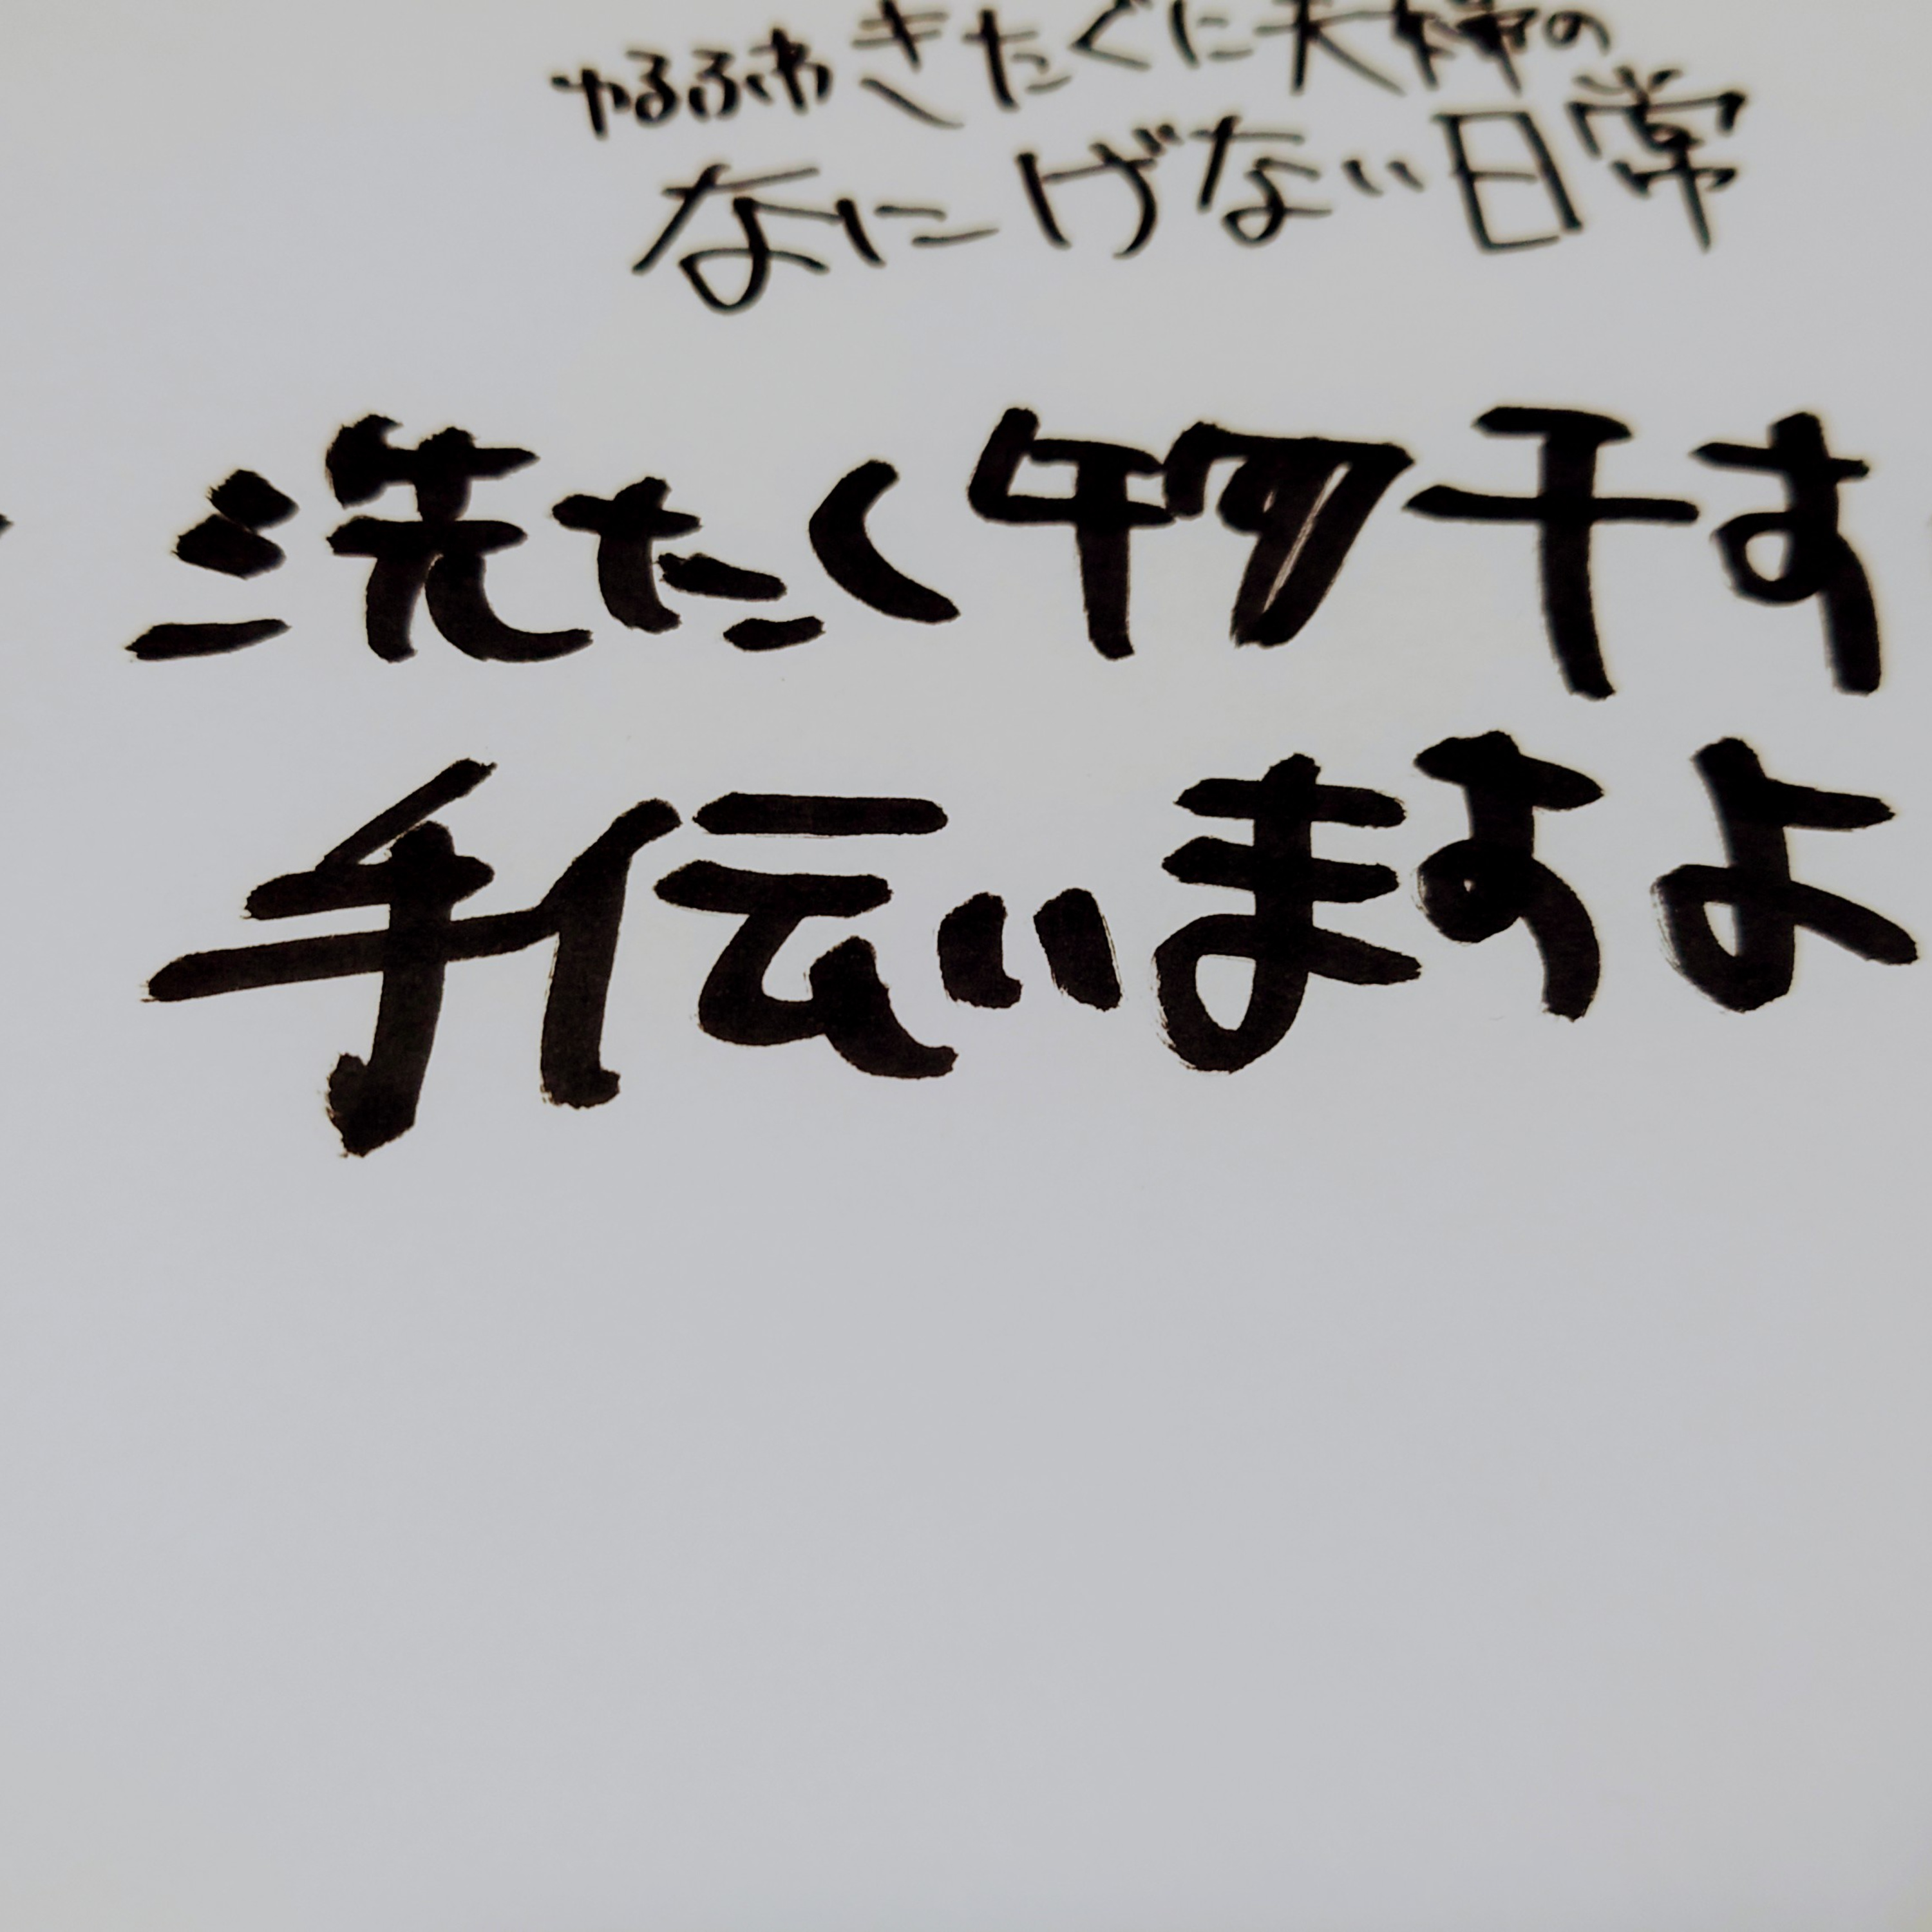 ゆるふわきたぐに夫婦の
なにげない日常
洗たく物干す
手伝いますよ